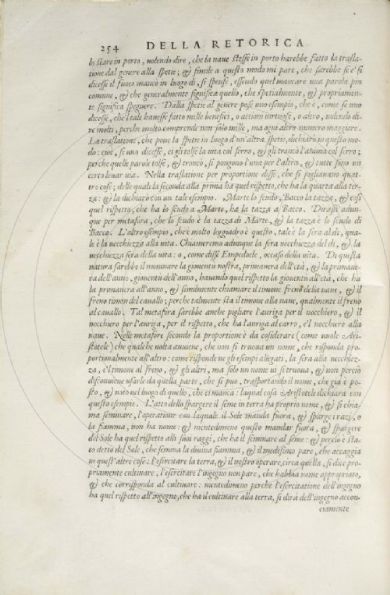 254 DELLA RETORICA
lo stare in porto, uolendo dire, che la naue stesse in porto harebbe fatto la trasla-
tione dal genere alla spetie; & simile a questo modo mi pare, che sarebbe se si
dicesse il fuoco mancò in luogo di, si spense, essendo quel mancare una parola piu
comune, & che generalmente significa quello, che spetialmente, & propriamen-
te significa spegnere. Dalla spetie al genere pose uno esempio, che è, come se uno
dicesse, che tale hauesse fatto mille benefici, o attioni uirtuose, o altro, uolendo di-
re molti, perche molto comprende non solo mille, ma ogni altro numero maggiore.
La traslatione, che pone la spetie in luogo d'un'altra spetie, dichiarò in questo mo-
do: cioè, se uno dicesse, ei gli tolse la uita col ferro, & gli troncò l'anima col ferro;
perche quelle parole tolse, & troncò, si pongono l'una per l'altra, & tutte sono un
certo leuar uia. Nella traslatione per proportione disse, che si pigliauano quat-
tro cose; delle quali la seconda alla prima ha quel rispetto, che ha la quarta alla ter-
za: & la dichiarò con un tale esempio. Marte lo scudo, Bacco la tazza, & così
quel rispetto, che ha lo scudo a Marte, ha la tazza a Bacco. Dirassi adun-
que per metafora, che lo scudo è la tazza di Marte, & la tazza è lo scudo di
Bacco. L'altro esempio, che è molto leggiadro è questo, tale è la sera al dì, qua-
le è la uecchiezza alla uita. Chiameremo adunque la sera uecchiezza del dì, & la
uecchiezza sera della uita: o, come disse Empedocle, occaso della uita. Di questa
natura sarebbe il nominare la giouentù nostra, primauera dell'età, & la primaue-
ra dell'anno, giouentù dell'anno, hauendo quel rispetto la giouentù all'età, che ha
la primauera all'anno, & similmente chiamare il timone freno della naue, & il
freno timon del cauallo; perche tal mente sta il timone alla naue, qualmente il freno
al cauallo. Tal metafora sarebbe anche pigliare l'auriga per il nocchiero, & il
nocchiero per l'auriga, per il rispetto, che ha l'auriga al carro, e'l nocchiero alla
naue. Nelle metafore secondo la proportione è da considerare (come uuole Ari-
stotele) che qualche uolta auuiene, che non si truoua un nome, che risponda pro-
portionalmente all'altro: come risponde ne gli esempi allegati, la sera alla uecchiez-
za, e'l timone al freno, & gli altri, ma solo un nome ui si truoua, & non perciò
disconuiene usarlo da quella parte, che si può, trasportando il nome, che già è po-
sto, & noto nel luogo di quello, che ci manca: la qual cosa Aristotele dichiara con
questo esempio. L'atto dello spargere il seme in terra ha proprio nome, & si chia-
ma seminare, l'operatione con la quale il Sole manda fuora, & sparge i razzi, o
la fiamma, non ha nome: & nientedimeno questo mandar fuora, & spargere
del Sole ha quel rispetto alli suoi raggi, che ha il seminare al seme: & perciò è sta-
to detto del Sole, che semina la diuina fiamma, & il medesimo pare, che accaggia
in quest'altre cose: l'esercitare la terra, & il nostro operare circa quella, si dice pro-
priamente cultiuare, l'esercitare l'ingegno non pare, che habbia nome appropriato,
& che corrisponda al cultiuare: nientedimeno perche l'esercitatione dell'ingegno
ha quel rispetto all'ingegno, che ha il cultiuare alla terra, si dirà dell'ingegno accon-
ciamente